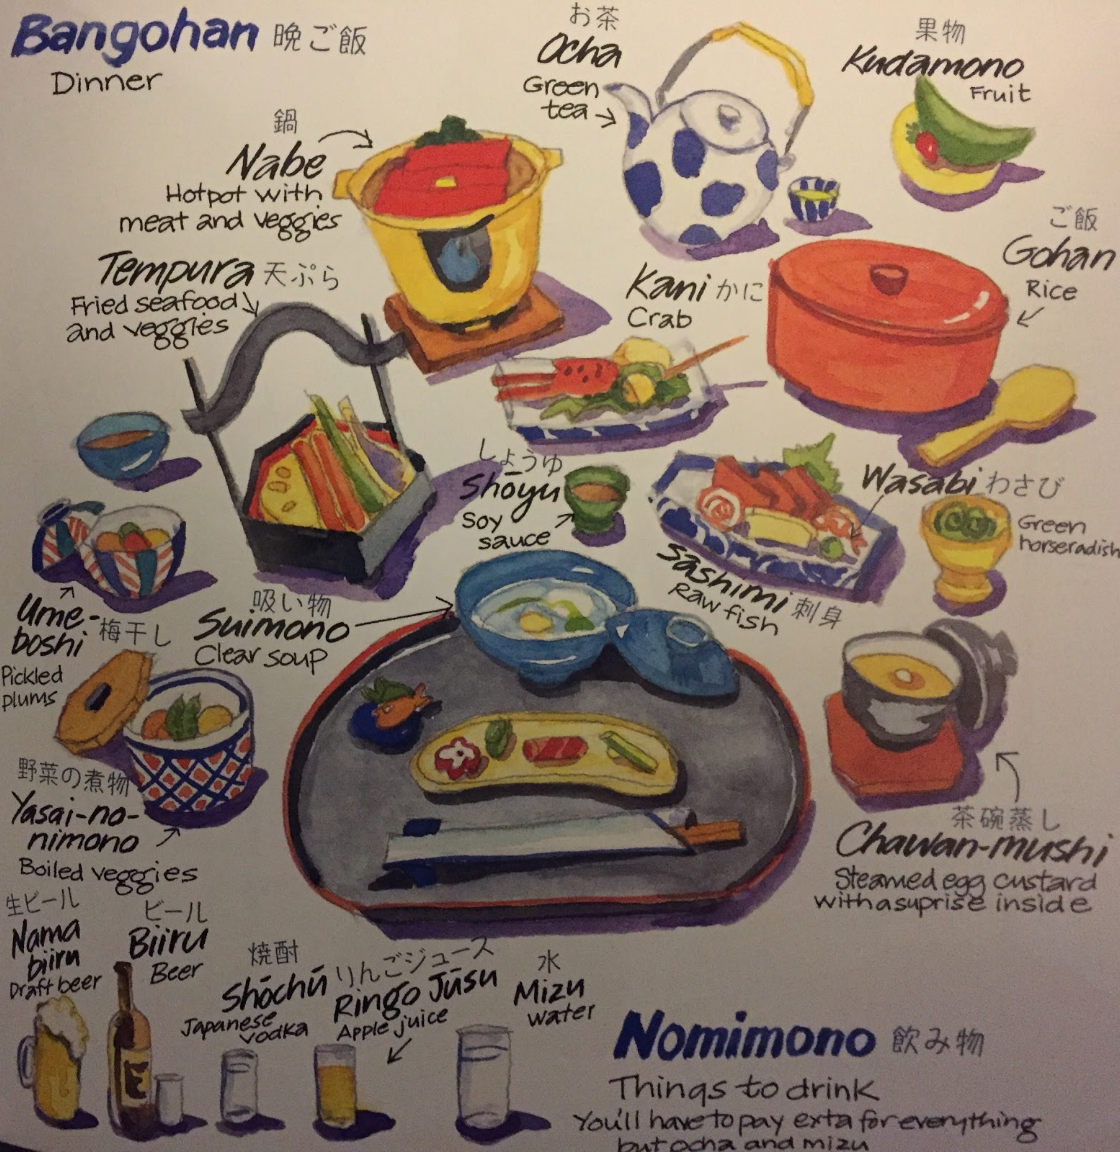 Bangohan 晩ご飯
Dinner
お茶
Ocha
Green
tea
果物
Kudamono
Fruit
鍋
Nabe
Hotpot with
meat and veggies
ご飯
Gohan
Rice
Tempura 天ぷら
Fried seafood
and veggies
Kani かに
Crab
しょうゆ
Shōyu
Soy
sauce
Wasabi わさび
Green
horseradish
Sashimi 刺身
Raw fish
Ume-
boshi 梅干し
Pickled
plums
吸い物
Suimono
Clear soup
野菜の煮物
Yasai-no-
nimono
Boiled veggies
茶碗蒸し
Chawan-mushi
Steamed egg custard
with a suprise inside
生ビール
Nama
biiru
Draft beer
ビール
Biiru
Beer
焼酎
Shōchū
Japanese
vodka
りんごジュース
Ringo Jūsu
Apple juice
水
Mizu
Water
Nomimono 飲み物
Things to drink
You'll have to pay exta for everything
but ocha and mizu